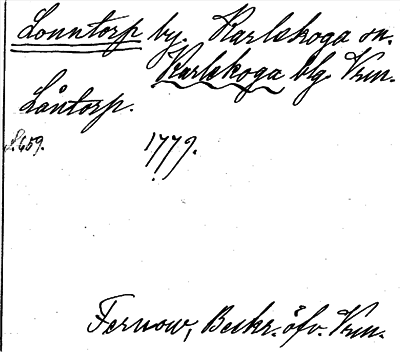 Lonntorp by. Karlskoga sn.
Karlskoga blg. Vrm.
Låntorp.
S. 659. 1779.
Fernow, Beskr. öfv. Vrm.